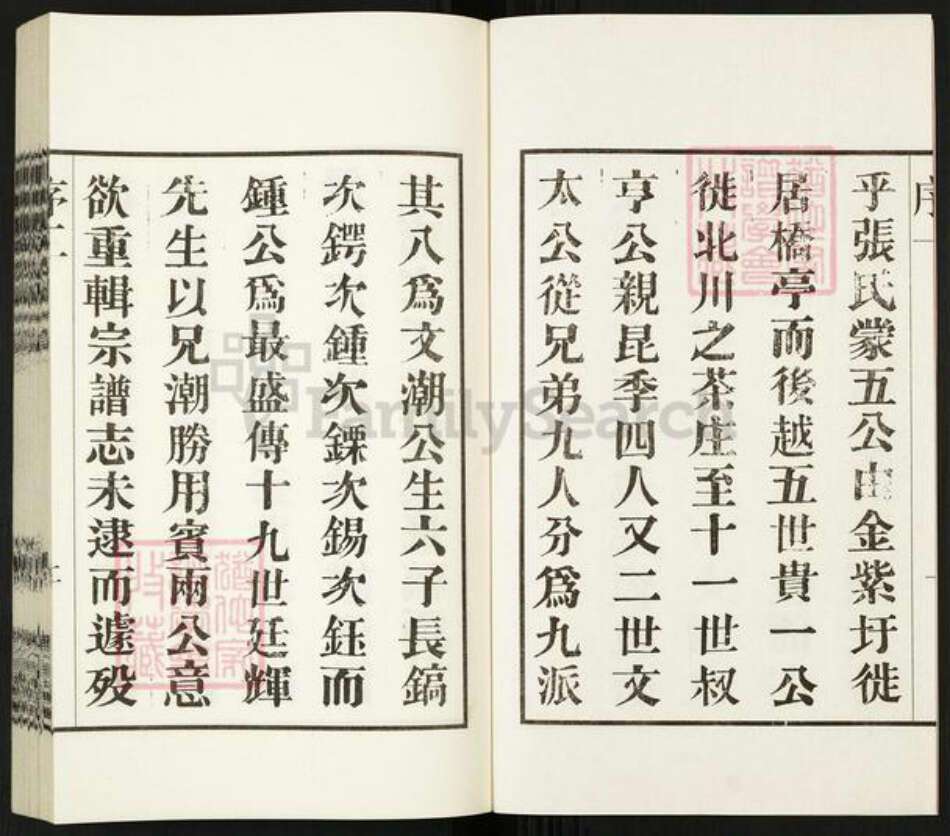 序
乎張氏蒙五公由金紫圩徙
居橋亭而後越五世貴一公
徙北川之茶庄至十一世叔
亨公親昆季四人又二世文
太公從兄弟九人分爲九派
其八爲文潮公生六子長鎬
次鍔次鍾次鏁次錫次鈺而
鍾公爲最盛傳十九世廷輝
先生以兄潮勝用賓兩公意
欲重輯宗譜志未逮而遽歿
FamilySearch